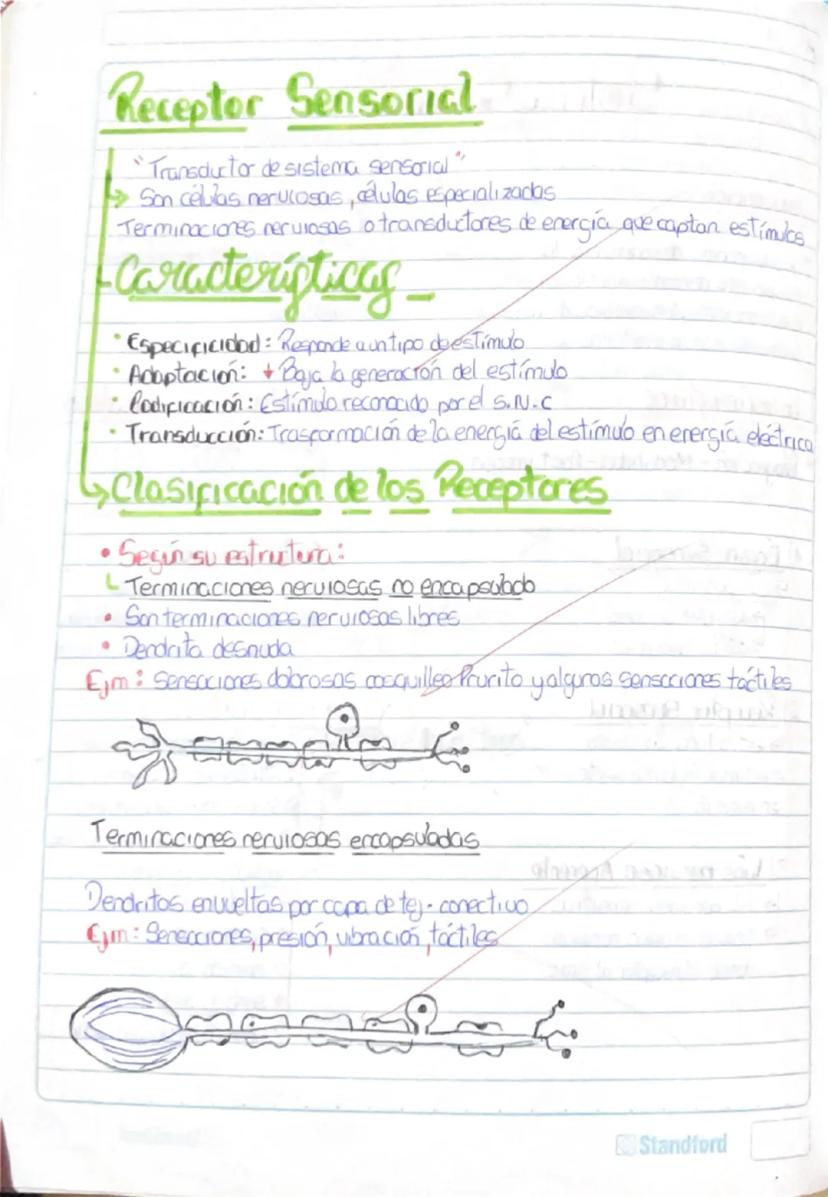 Receptor Sensorial
"Transductor de sistema sensorial"
Son células nerviosas, células especializadas
Terminaciones nerviosas o transductores de energía que captan estímulos
Características
• Especificidad: Responde a un tipo de estímulo
• Adaptación: ↓ Baja la generación del estímulo
• Codificación: Estímulo reconocido por el S.N.C
• Transducción: Trasformación de la energía del estímulo en energía eléctrica
Clasificación de los Receptores
• Según su estructura:
Terminaciones nerviosas no encapsulado
• Son terminaciones nerviosas libres
• Dendrita desnuda
Ejm: Sensaciones dolorosas cosquilleo Prurito y algunos sensaciones táctiles
Terminaciones nerviosas encapsuladas
Dendritos envueltas por capa de tej. conectivo
Ejm: Sensaciones, presión, vibración, táctiles
Standford